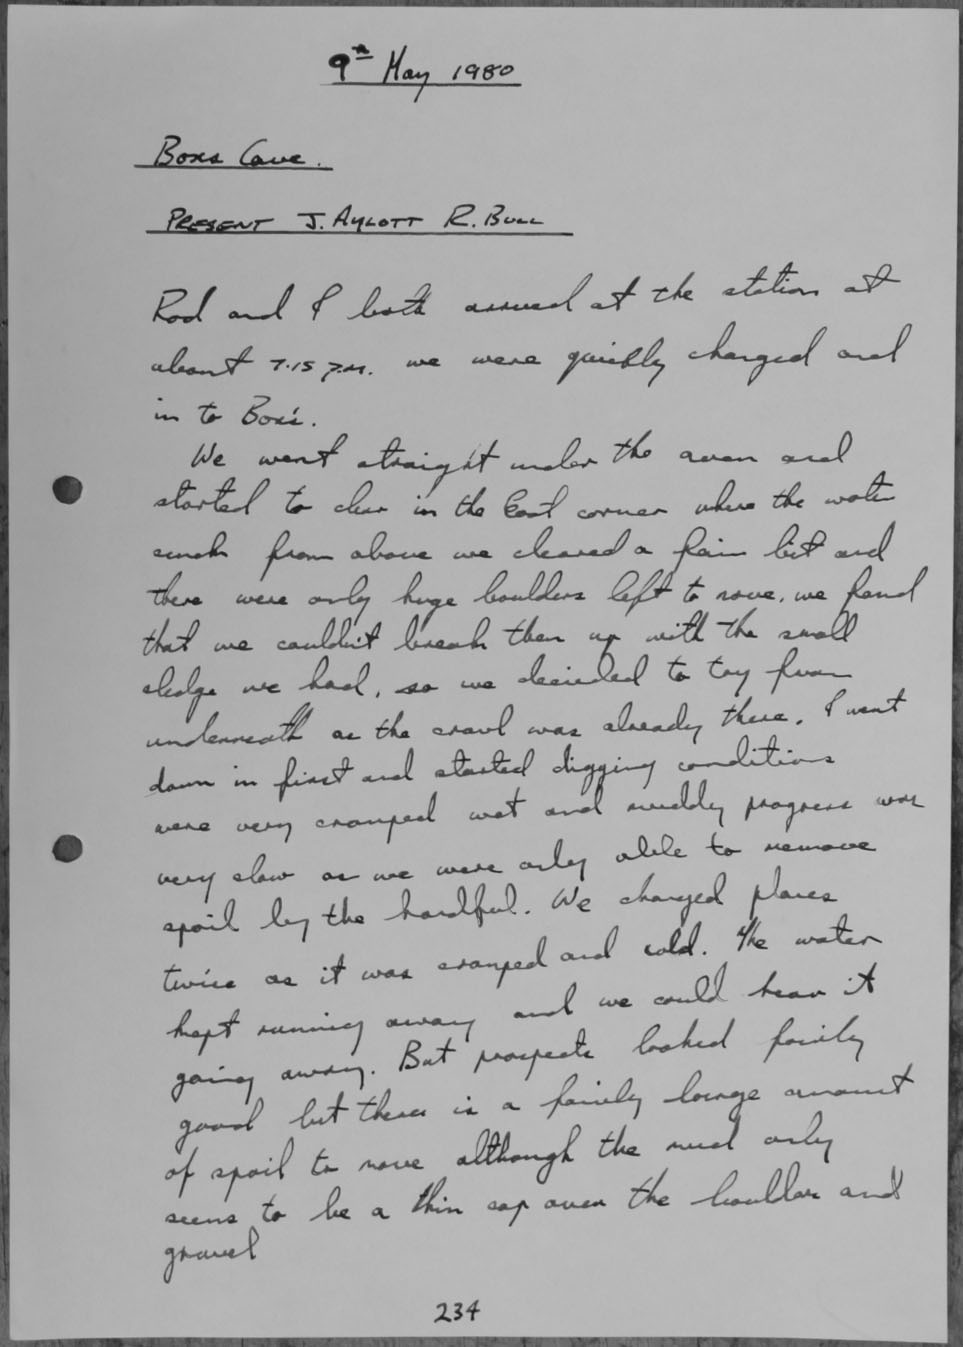 9th May 1980
Boxs Cave.
PRESENT J. AYLOTT R. BULL
Rod and I both arrived at the station at
about 7.15 P.M. we were quickly changed and
in to Box's.
We went straight under the aven and
started to clear in the East corner where the water
sinks from above we cleared a fair bit and
there were only huge boulders left to move, we found
that we couldn't break them up with the small
sledge we had, so we decided to try from
underneath as the crawl was already there. I went
down in first and started digging conditions
were very cramped wet and muddy progress was
very slow as we were only able to remove
spoil by the handful. We changed places
twice as it was cramped and cold. The water
kept running away and we could hear it
going away. But prospects looked fairly
good but there is a fairly large amount
of spoil to move although the mud only
seems to be a thin cap over the boulder and
gravel
234